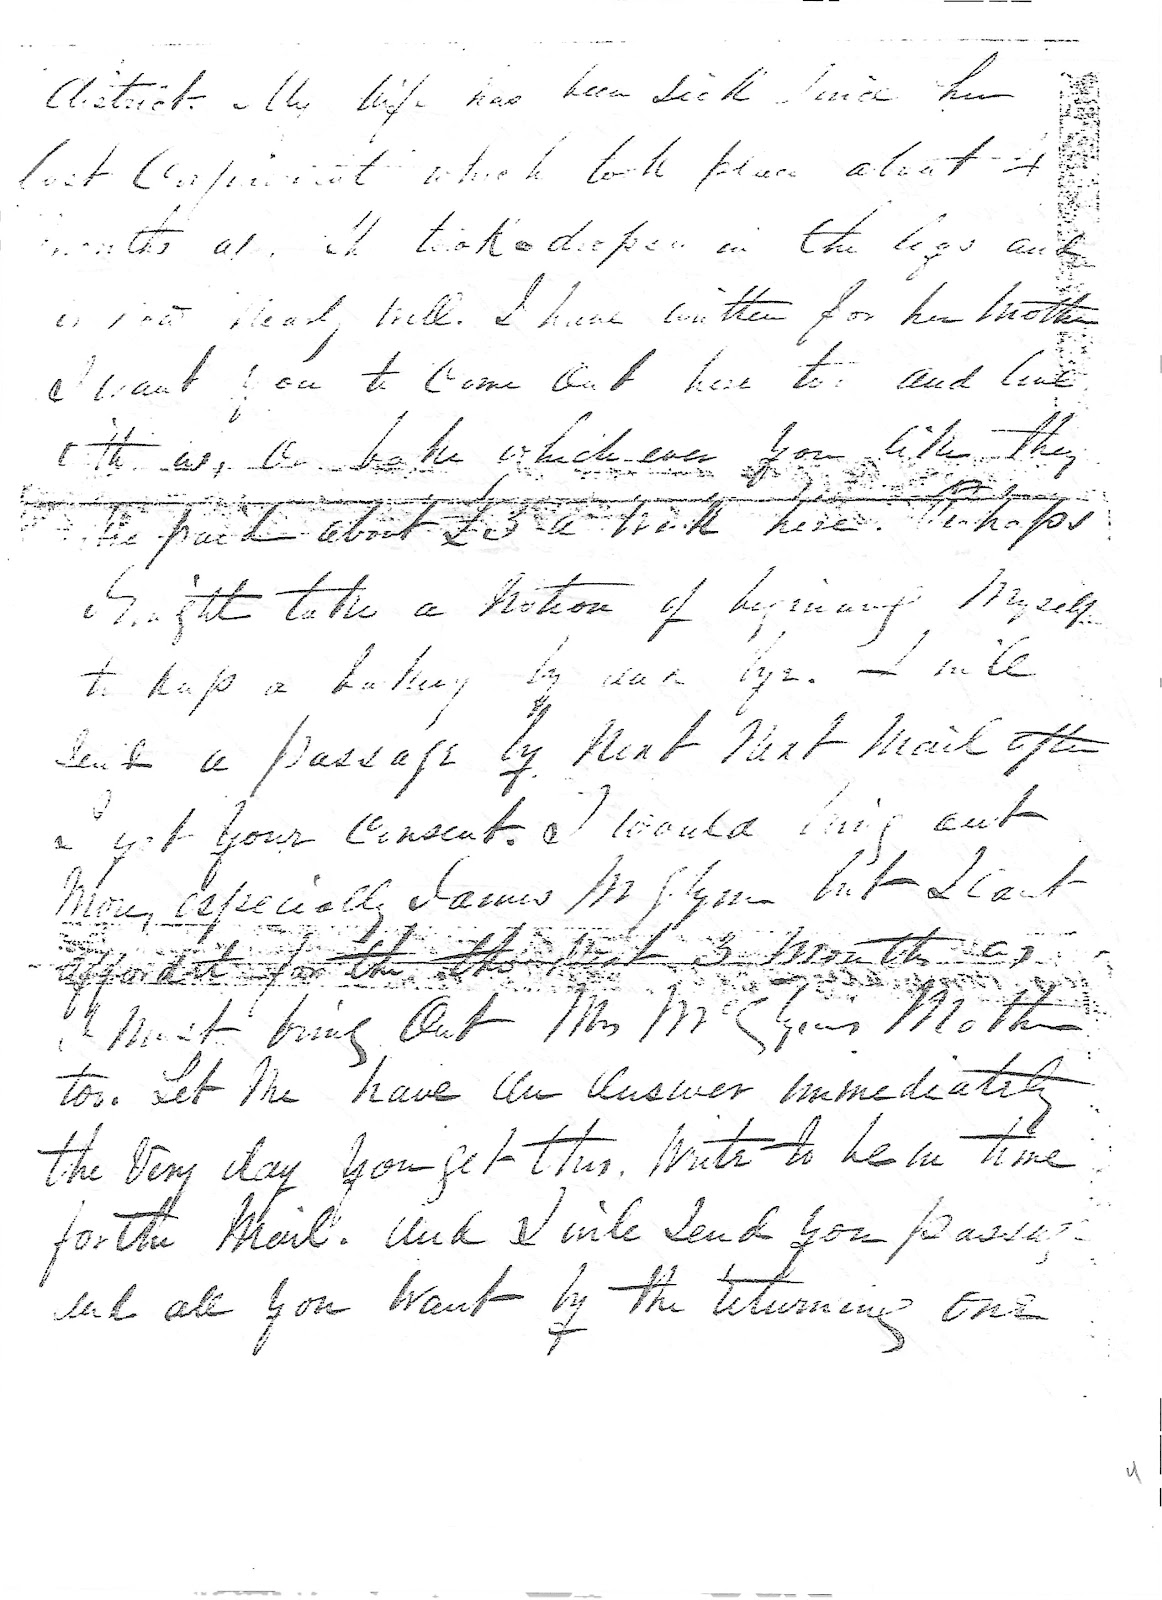 district. My wife has been sick since her
last Confinement which took place about 4
months ago. It took a dropsy in the legs and
is now nearly well. I have written for her Mother
I want you to Come Out here too and live
with us, Or bake which ever you like they
are paid about £3 a week here. Perhaps
I might take a Notion of beginning Myself
to keep a bakery by and bye. I will
send a passage by Next Next Mail after
I get your Consent. I would bring out
More, especially James McGlynn but I cant
afford it for the the Next 3 Months as
I Must bring Out Mrs McGlynns Mother
too. Let Me have An Answer immediately
the Very day you get this. Write to be in time
for the Mail. And I will Send you passage
and all you Want by the returning one
4